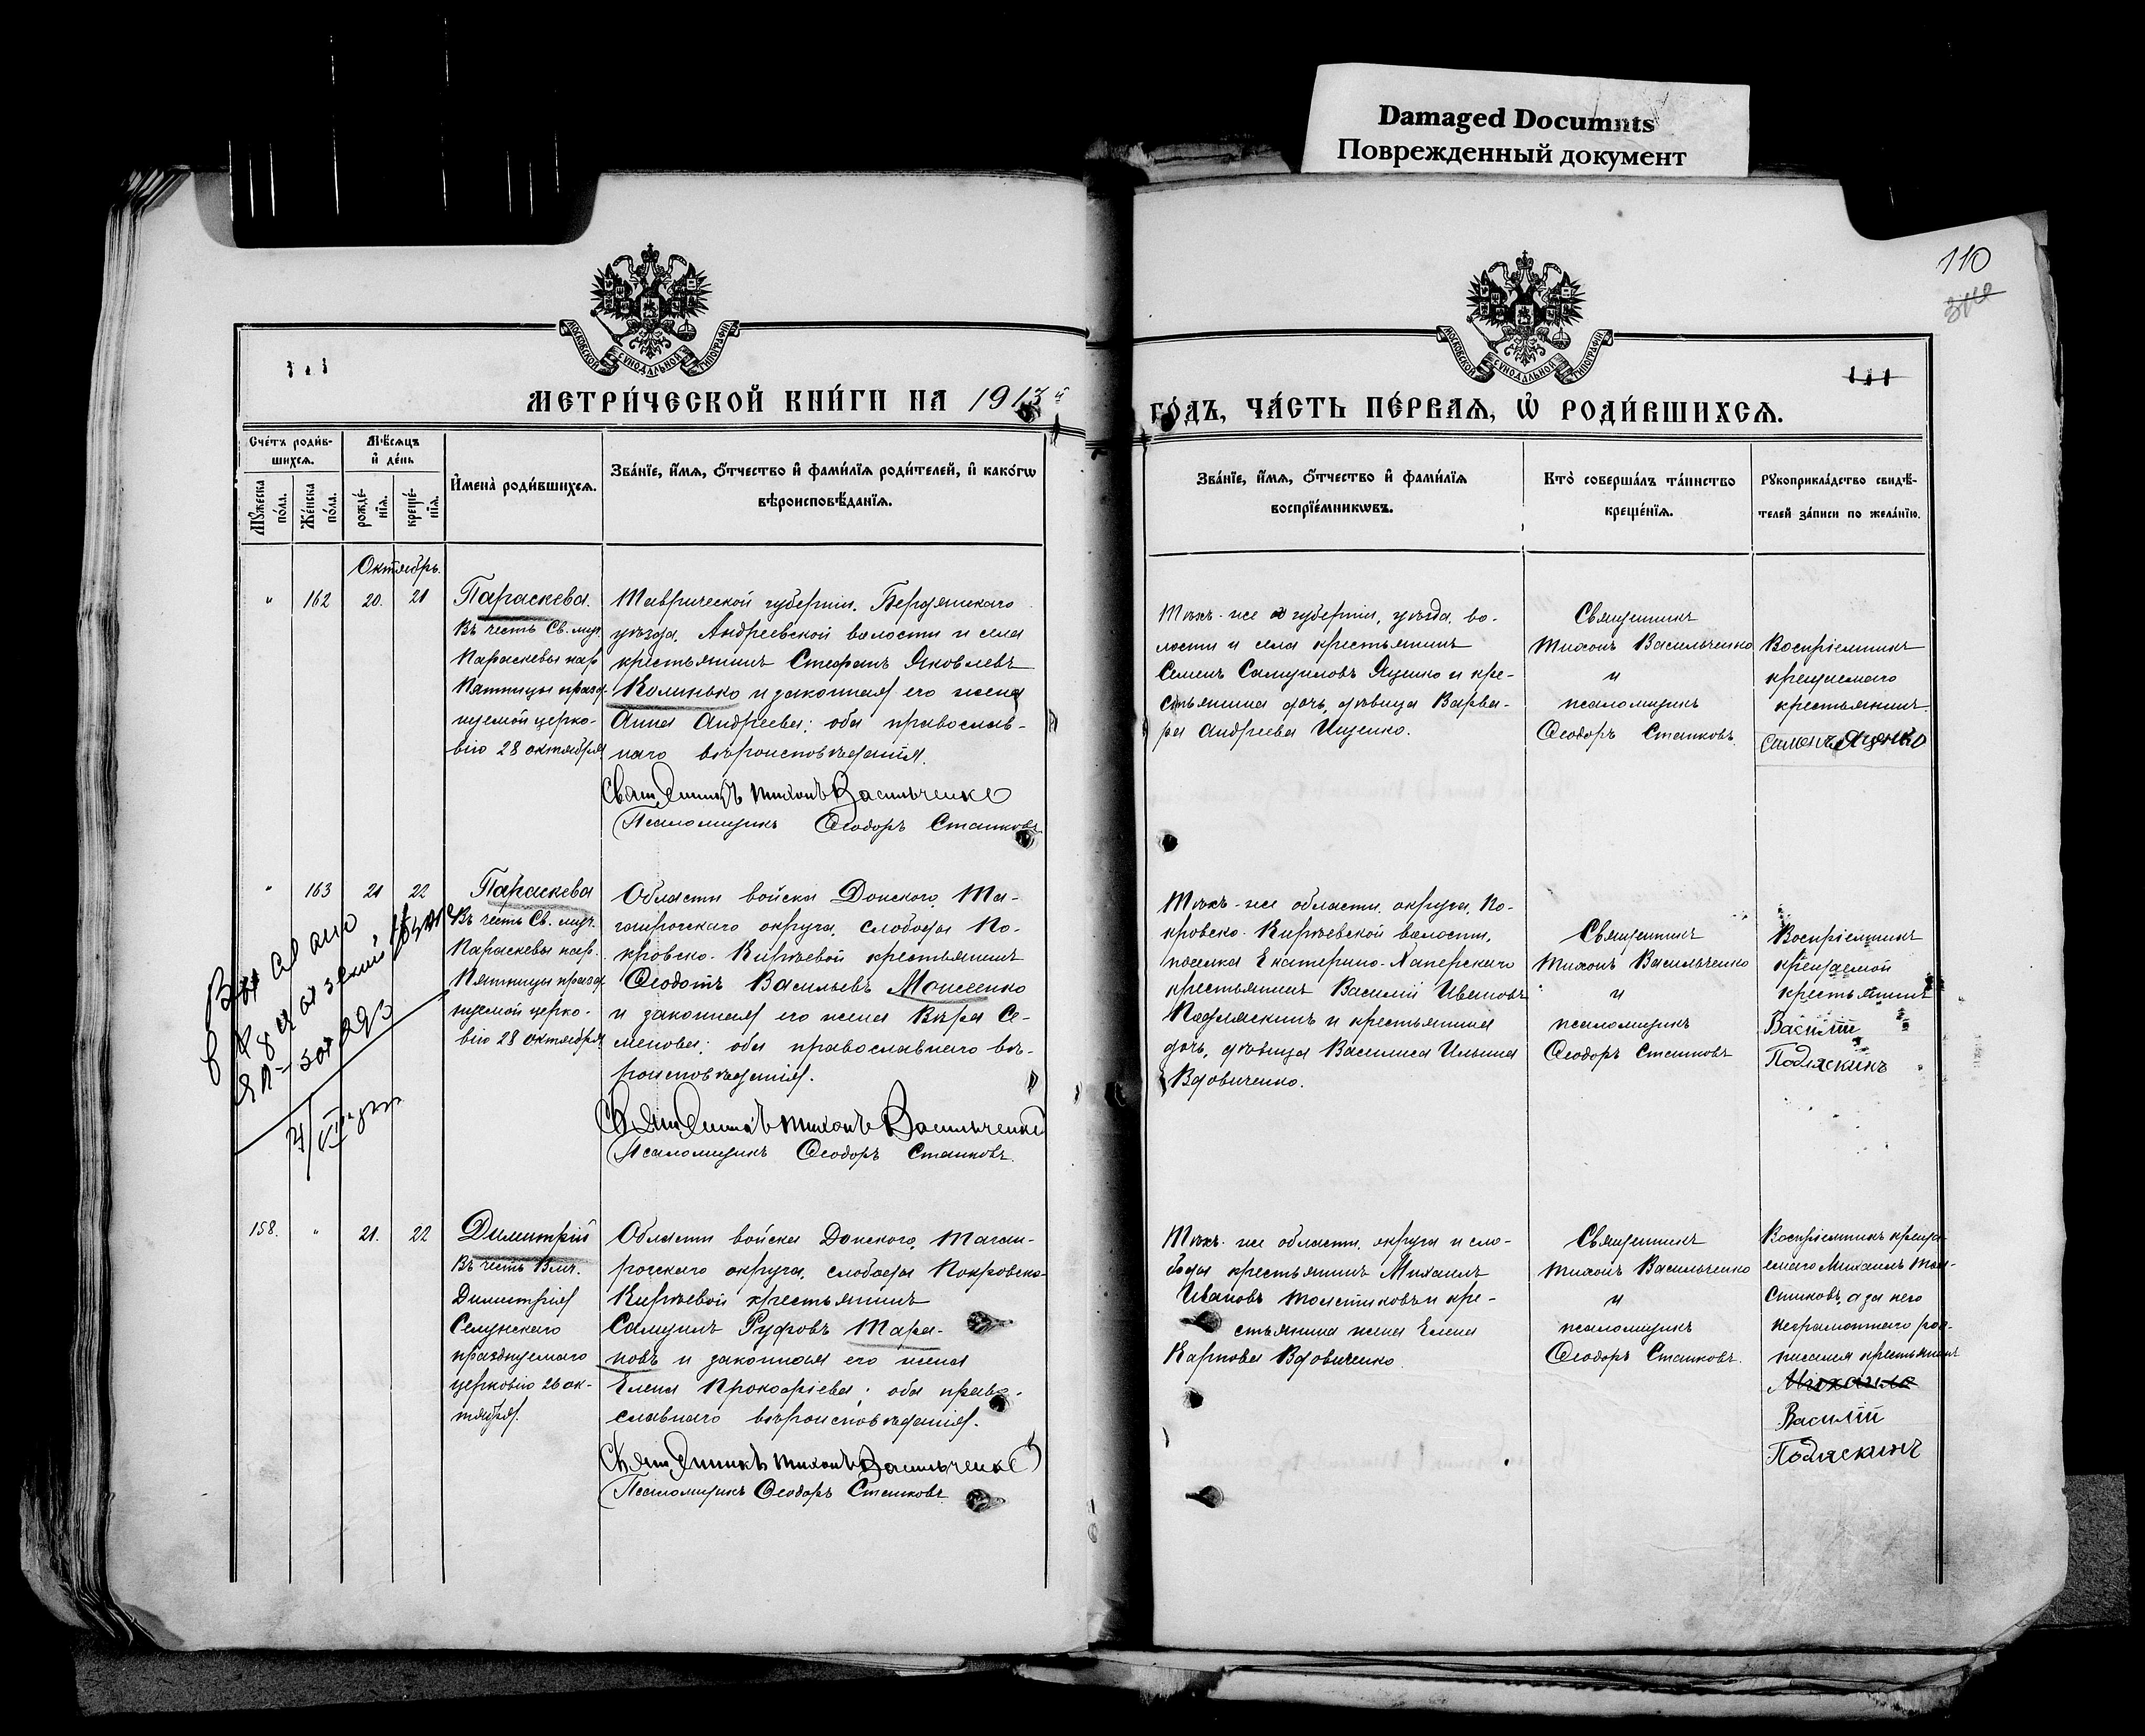 Damaged Documnts
Поврежденный документ
110
МОСКОВСКОЙ СУНОДАЛЬНОЙ ТИПОГРАФІИ
МОСКОВСКОЙ СУНОДАЛЬНОЙ ТИПОГРАФІИ
МЕТРИ́ЧЕСКОЙ КНИ́ГИ НА 1913й
ГО́ДЪ, ЧА́СТЬ ПЕ́РВАѦ, Ѡ҆ РОДИ́ВШИХСѦ.
Сче́тъ роди́в-
шихсѧ.
Мѣ́сѧцъ
и҆ де́нь
Мꙋ́жеска
по́ла.
Же́нска
по́ла.
рожде́-
нїѧ.
креще́-
нїѧ.
И҆мена̀ роди́вшихсѧ.
Зва́нїе, и҆́мѧ, ѻ҆́тчество и҆ фами́лїѧ роди́телей, и҆ како́гѡ
вѣроисповѣ́данїѧ.
Зва́нїе, и҆́мѧ, ѻ҆́тчество и҆ фами́лїѧ
воспрїе́мникѡвъ.
Кто̀ соверша́лъ та́инство
креще́нїѧ.
Рꙋкоприкла́дство свидѣ́-
телей за́писи по жела́нїю.
Октябрь.
" 162 20. 21
Параскева.
Въ честь Св. муч.
Параскевы нар.
Пятницы празд-
нуемой церко-
вію 28 октября
Таврической губерніи, Бердянскаго
уѣзда, Андреевской волости и села
крестьянинъ Стефанъ Яковлевъ
Колинько и законная его жена
Анна Андреева; оба православ-
наго вѣроисповѣданія.
Священникъ Тихонъ Васильченко
Псаломщикъ Ѳеодоръ Сташковъ
Тѣхъ-же губерніи, уѣзда, во-
лости и села крестьянинъ
Семенъ Самуиловъ Яценко и кре-
стьянина дочь, дѣвица Варва-
ра Андреева Ищенко.
Священникъ
Тихонъ Васильченко
и
псаломщикъ
Ѳеодоръ Сташковъ.
Воспріемникъ
крещаемаго
крестьянинъ
Семенъ Яценко
" 163 21 22
Параскева
Въ честь Св. муч.
Параскевы нар.
Пятницы празд-
нуемой церко-
вію 28 октября
Области войска Донского, Та-
ганрогскаго округа, слободы По-
кровско-Кирѣевой крестьянинъ
Ѳеодотъ Васильевъ Моисеенко
и законная его жена Вѣра Се-
менова; оба православнаго вѣ-
роисповѣданія.
Священникъ Тихонъ Васильченко
Псаломщикъ Ѳеодоръ Сташковъ.
Тѣхъ-же области, округа, По-
кровско-Кирѣевской волости,
поселка Екатерино-Хаперскаго
крестьянинъ Василій Ивановъ
Подляскинъ и крестьянина
дочь, дѣвица Василиса Ильина
Вдовиченко.
Священникъ
Тихонъ Васильченко
и
псаломщикъ
Ѳеодоръ Сташковъ
Воспріемникъ
крещаемой
крестьянинъ
Василій
Подляскинъ
158. " 21. 22
Димитрій
Въ честь Влмч.
Димитрія
Селунскаго
празднуемаго
церковію 26 ок-
тября.
Области войска Донского, Таган-
рогскаго округа, слободы Покровско-
Кирѣевой крестьянинъ
Самуилъ Руфовъ Тара-
новъ и законная его жена
Елена Прокофіева; оба право-
славнаго вѣроисповѣданія.
Священникъ Тихонъ Васильченко
Псаломщикъ Ѳеодоръ Сташковъ
Тѣхъ-же области, округа и сло-
боды крестьянинъ Михаилъ
Ивановъ Толстиковъ и кре-
стьянина жена Елена
Карпова Вдовиченко.
Священникъ
Тихонъ Васильченко
и
псаломщикъ
Ѳеодоръ Сташковъ.
Воспріемникъ креща-
емаго Михаилъ Тол-
стиковъ, а за него
неграмотнаго рос-
писался крестьянинъ
Михаило
Василій
Подляскинъ